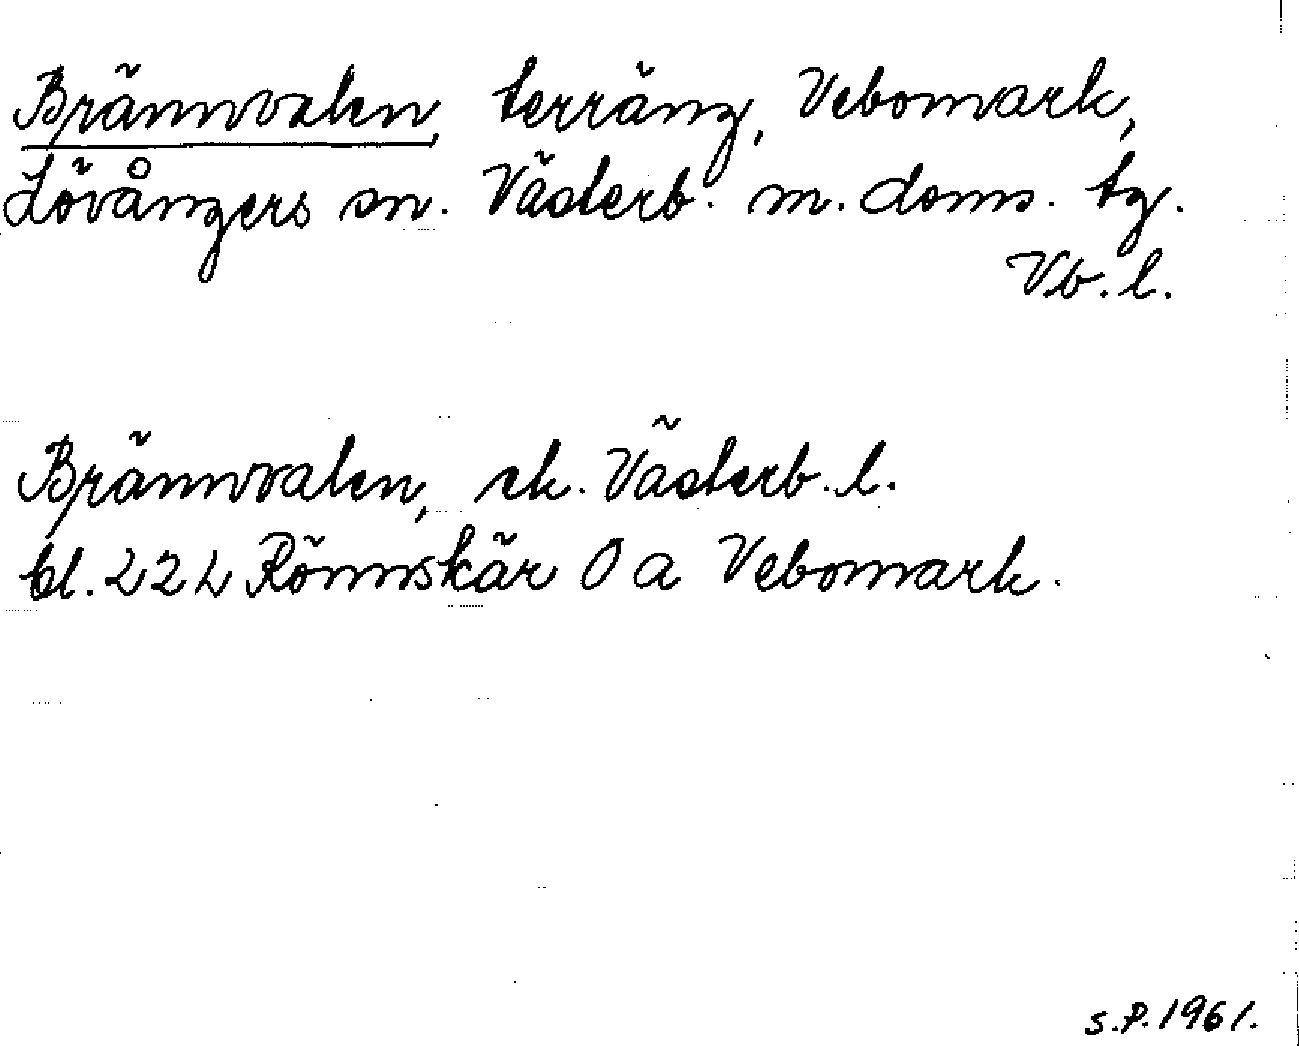 Brännvalen, terräng, Vebomark,
Lövångers sn. Västerb. m. doms. tg.
Vb. l.
Brännvalen, ek. Västerb. l.
bl. 222 Rönnskär O a Vebomark.
S.P. 1961.